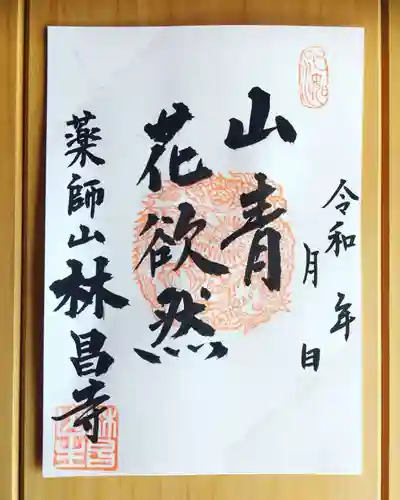 令和 年
月 日
山青
花欲然
薬師山 林昌寺